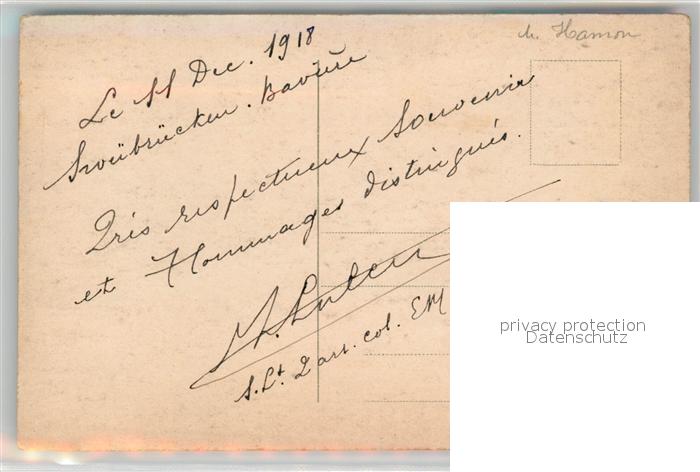 M. Hamon
Le 11 Dec. 1918
Sweübrücken. Bavière
Très respectueux Souvenir
et Hommages distingués.
S.Lt. 2 art. col. EM
privacy protection
Datenschutz